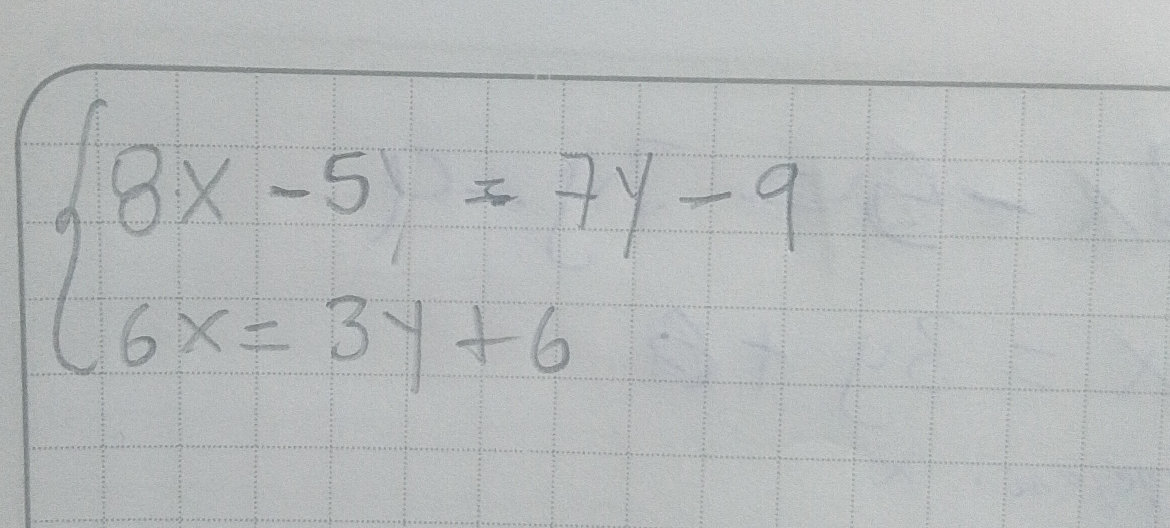 8x - 5y = 7y - 9
6x = 3y + 6